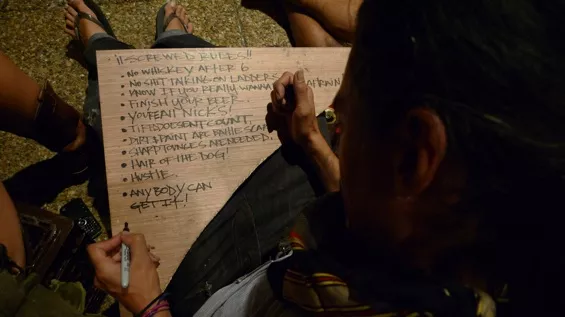 !!SCREWED RULES!!
• NO WHISKEY AFTER 6
• NO SHIT TALKING ON LADDERS
• KNOW IF YOU REALLY WANNA
• FINISH YOUR BEER
• YOUFEAN NICKS!
• DIRT & PAINT ARE
• SHARP TOUNGES NEEDED.
• HAIR OF THE DOG!
• HUSTLE.
• ANYBODY CAN
GET IT!